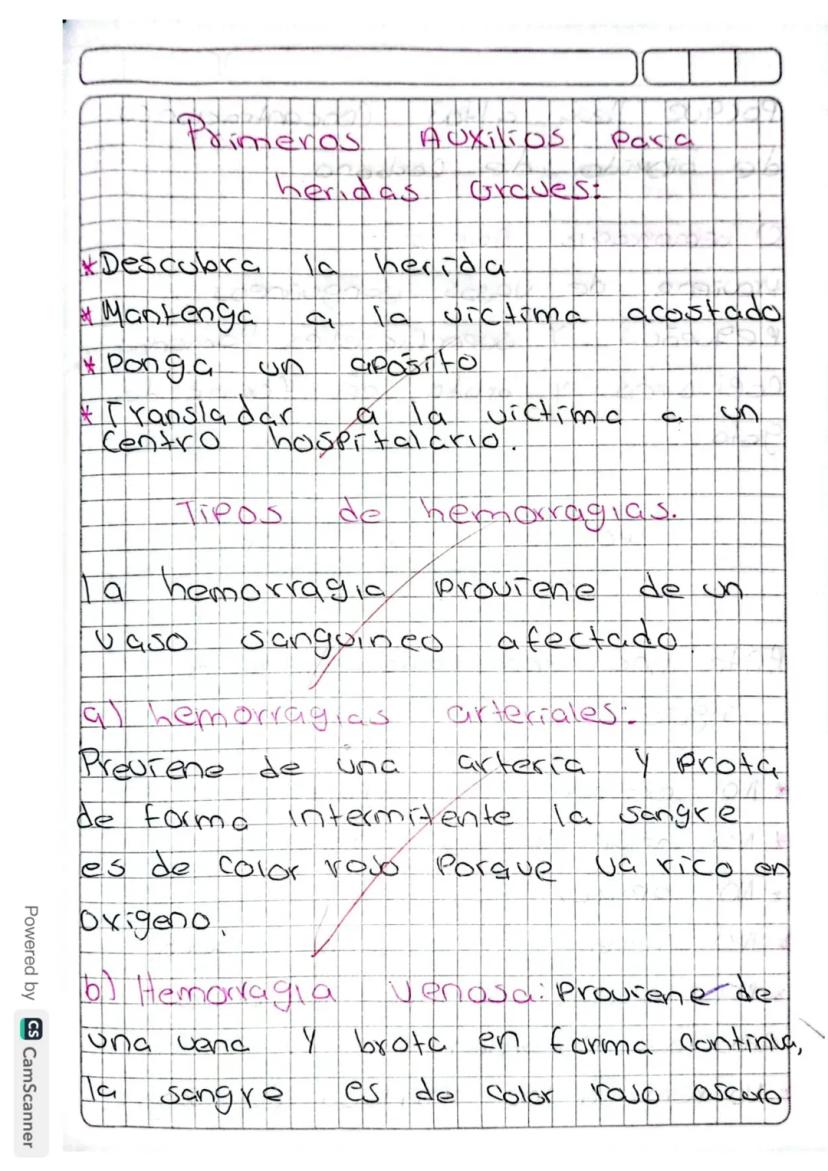 Primeros Auxilios Para
heridas Graves:
*Descubra la herida
*Mantenga a la victima acostado
*Ponga un aposito
*Transladar a la victima a un
Centro hospitalario.
Tipos de hemorragias.
la hemorragia Proviene de un
vaso sanguineo afectado.
a) hemorragias arteriales:
Previene de una arteria y Prota
de forma intermitente la sangre
es de color rojo Porque va rico en
oxigeno.
b) Hemorragia venosa: Proviene de
una vena y brota en forma continua,
la sangre es de color rojo oscuro
Powered by CS CamScanner